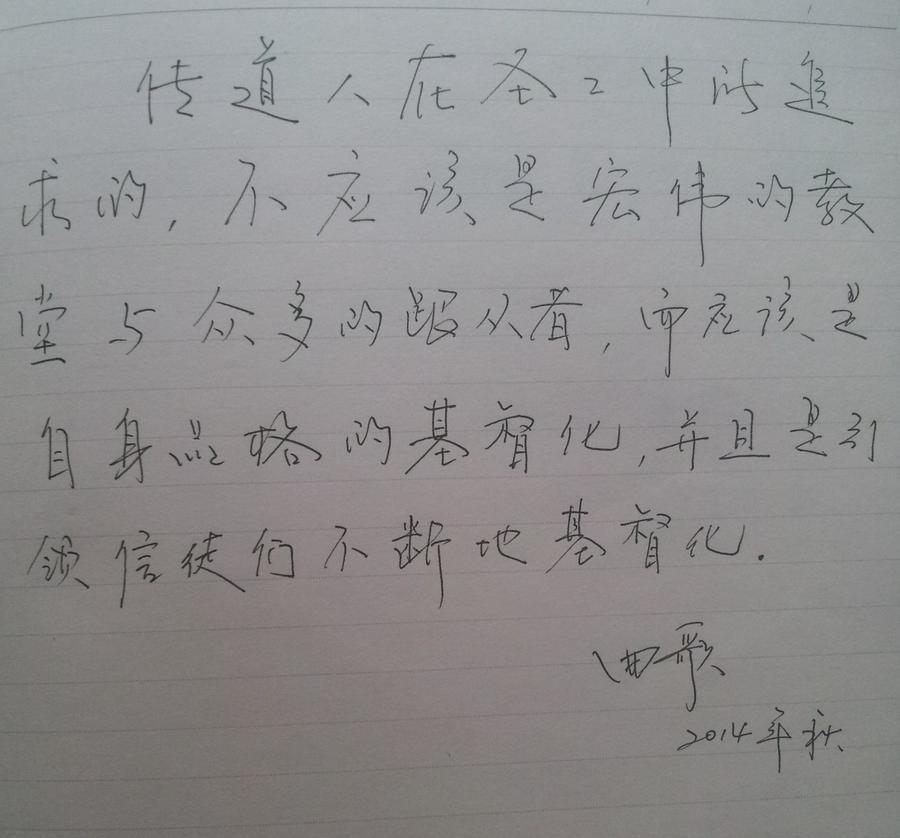 传道人在圣工中所追
求的,不应该是宏伟的教
堂与众多的跟从者,而应该是
自身品格的基督化,并且是引
领信徒们不断地基督化.
歌
2014年秋